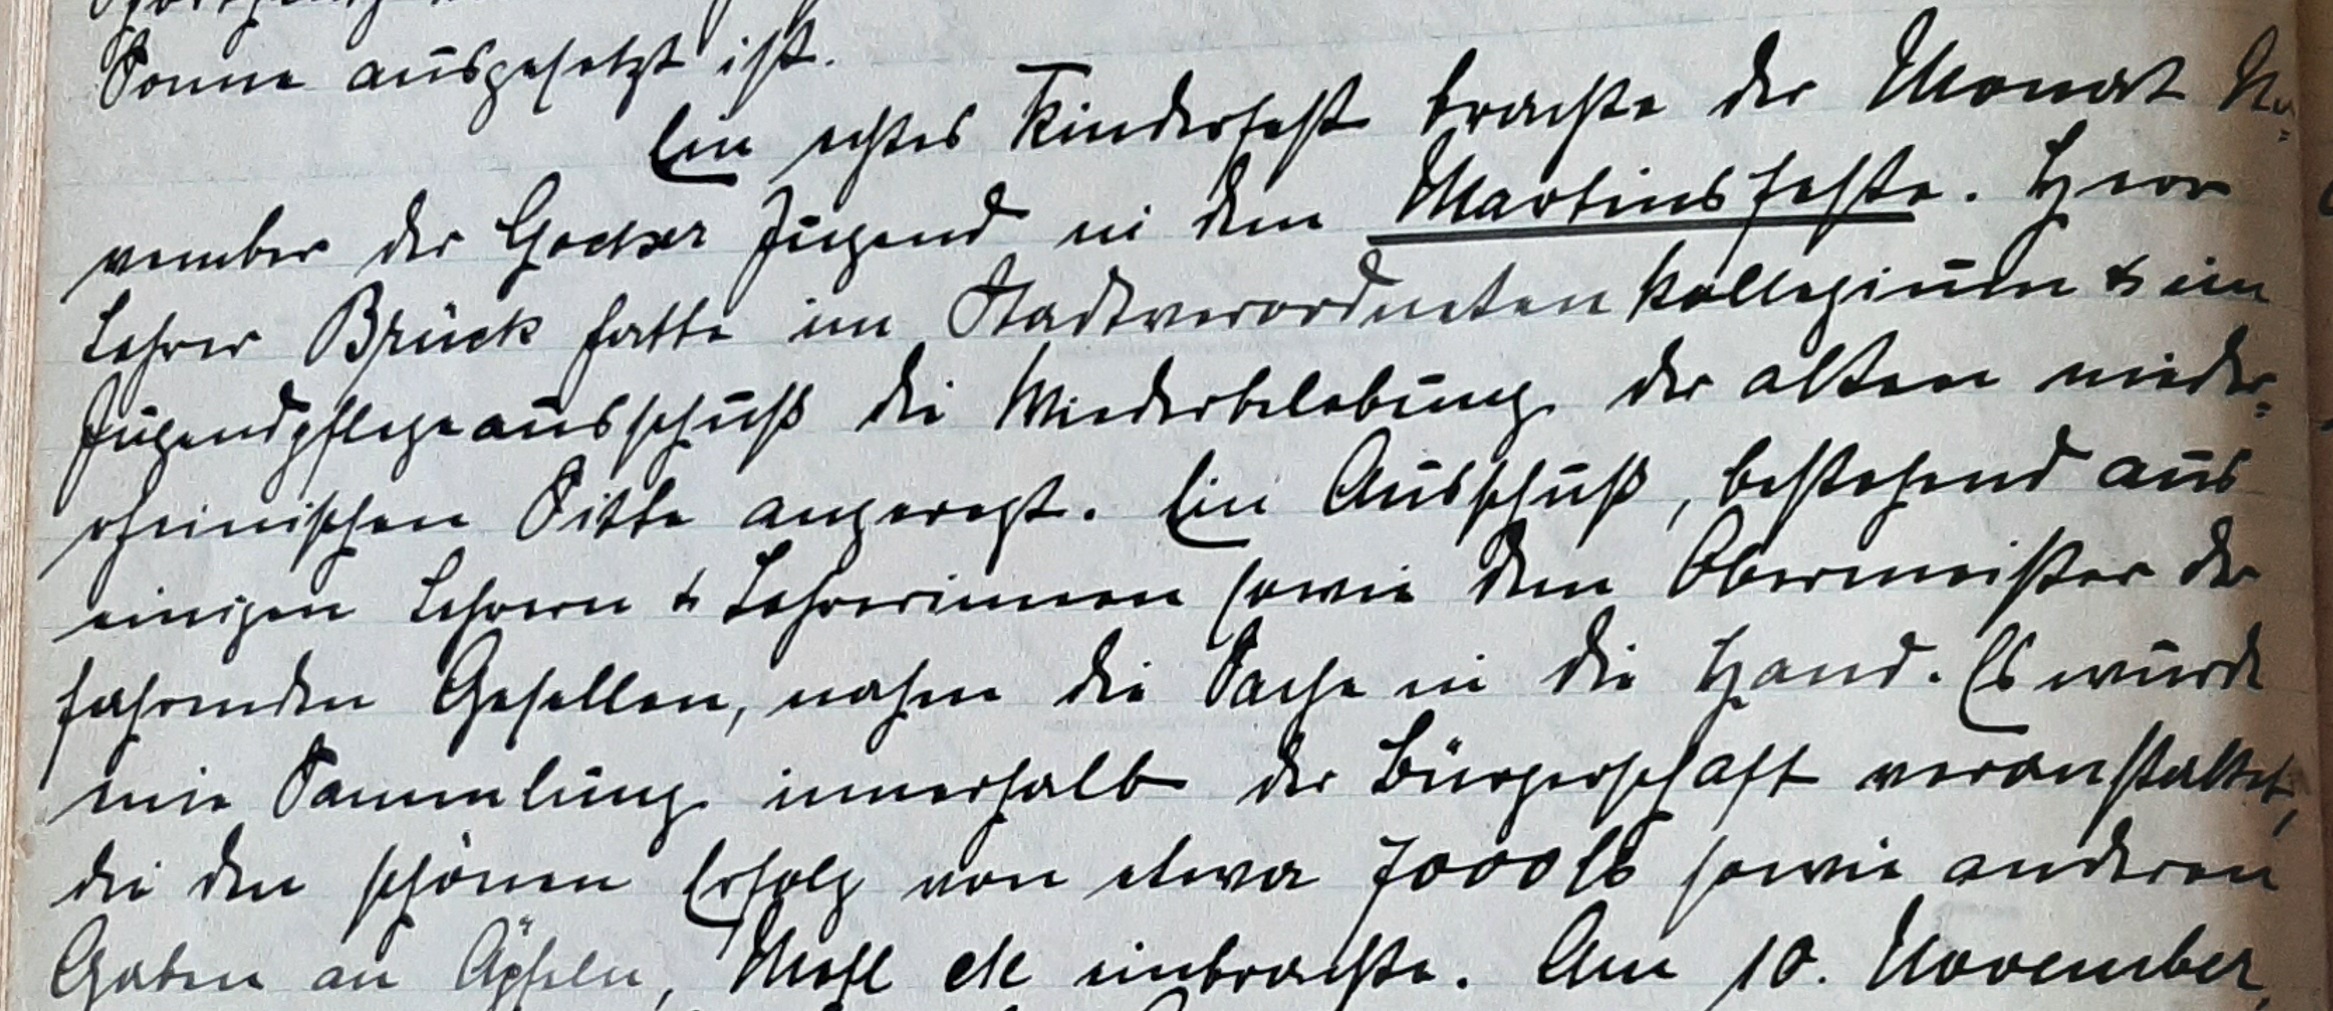 Sonne ausgesetzt ist.
Ein echtes Kinderfest brachte der Monat No=
vember der Gocher Jugend in dem Martinsfeste. Herr
Lehrer Brück hatte im Stadtverordneten Kollegium & im
Jugendpflegeausschuß die Wiederbelebung der alten nieder=
rheinischen Sitte angeregt. Ein Ausschuß, bestehend aus
einigen Lehrern & Lehrerinnen sowie dem Obermeister der
fahrenden Gesellen, nahm die Sache in die Hand. Es wurde
eine Sammlung innerhalb der Bürgerschaft veranstaltet,
die den schönen Erfolg von etwa 7000 M sowie anderen
Gaben an Äpfeln, Mehl etc einbrachte. Am 10. November,